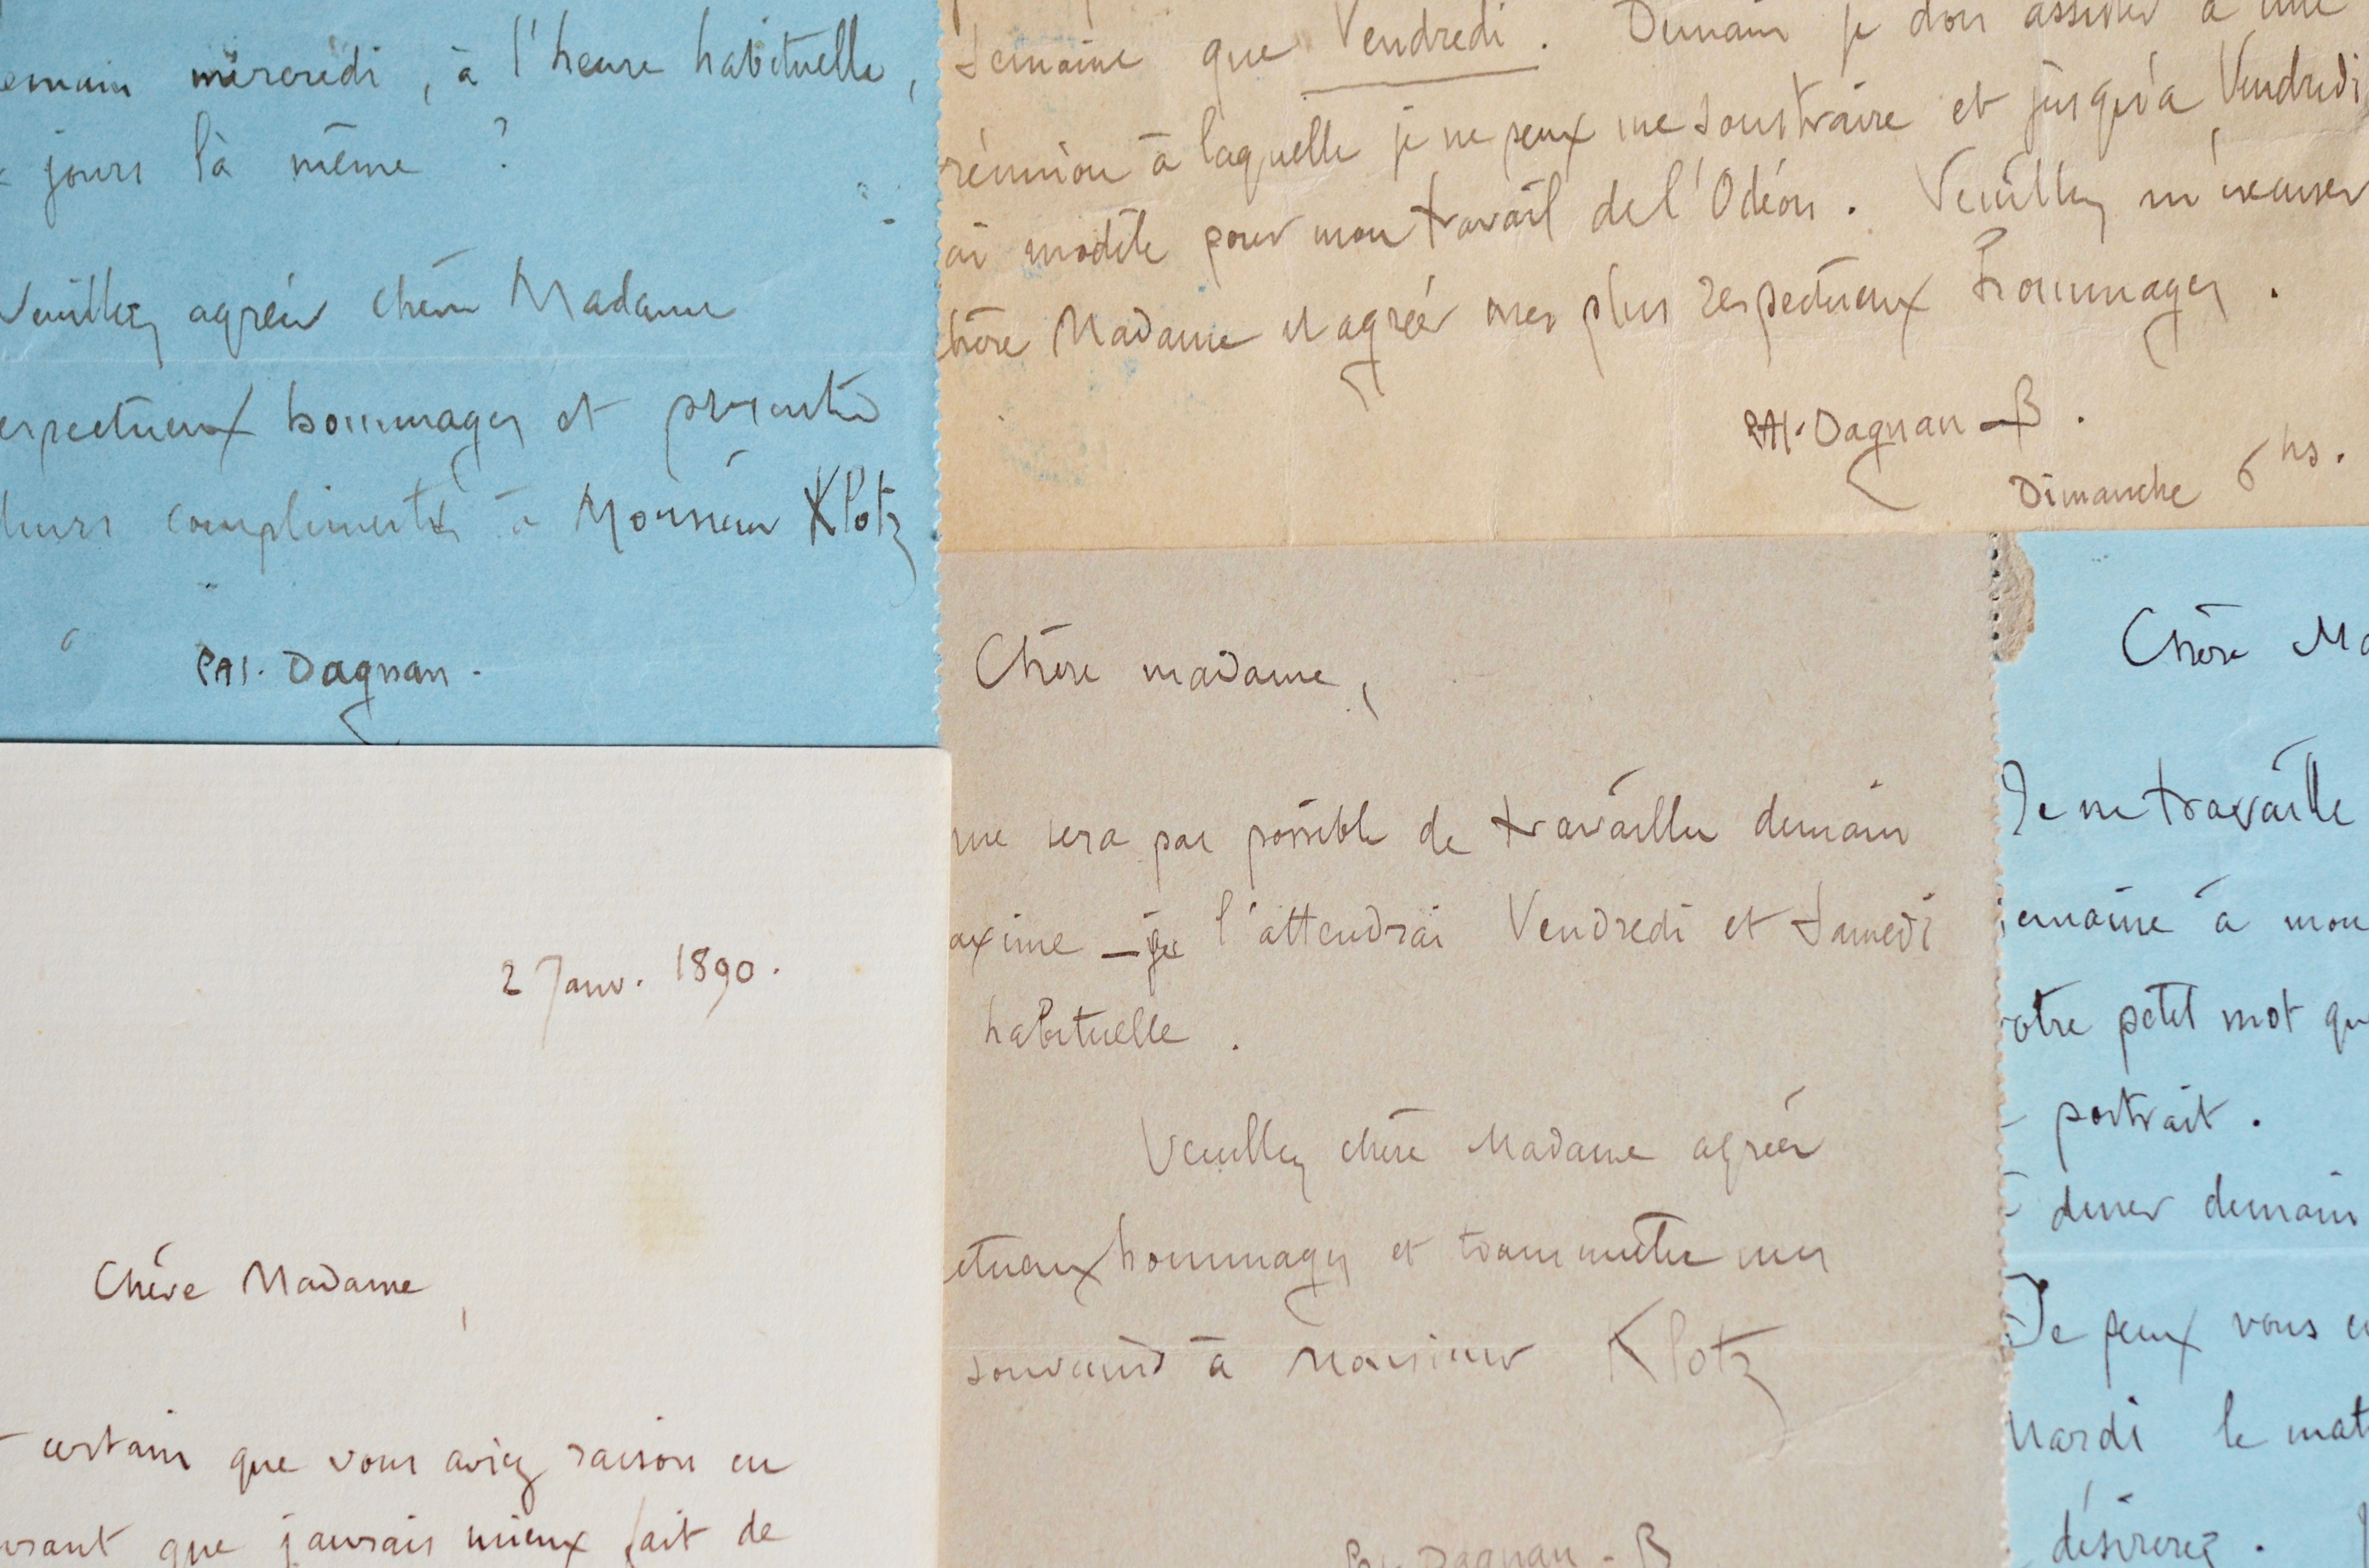 emain mercredi, à l'heure habituelle,
jours là même ?
Veuillez agréer chère Madame
espectueux hommages et présenter
leurs compliments à Monsieur Klotz
PAJ. Dagnan.
semaine que Vendredi. Demain je dois assister à une
réunion à laquelle je ne peux me soustraire et jusqu'à Vendredi
ai modèle pour mon travail de l'Odéon. Veuillez m'excuser
chère Madame et agréer mes plus respectueux hommages.
PAJ. Dagnan-B.
Dimanche 6 hs.
2 Janv. 1890.
Chère Madame,
certain que vous aviez raison en
que j'aurais mieux fait de
Chère madame,
me sera pas possible de travailler demain
axime - je l'attendrai Vendredi et Samedi
habituelle.
Veuillez chère Madame agréer
ctueux hommages et transmettre mes
souvenirs à Monsieur Klotz
Dagnan-B
Chère Ma
Je ne travaille
emaine à mon
otre petit mot qu
portrait.
diner demain
Je peux vous
Mardi le mat
désirerez.